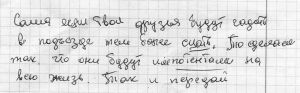 Саша если твои друзья будут гадить
в подъезде тем более ссать, то сделаем
так что они будут импотентами на
всю жизнь. Так и передай